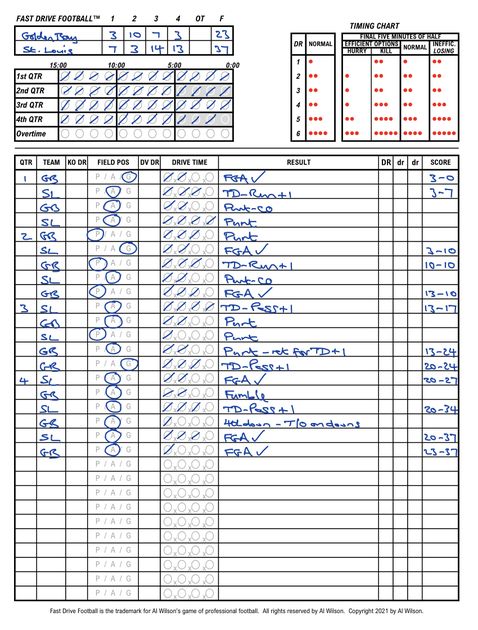 FAST DRIVE FOOTBALL™ 1 2 3 4 OT F
Golden Bay 3 10 7 3 23
St. Louis 7 3 14 13 37
15:00 10:00 5:00 0:00
1st QTR
2nd QTR
3rd QTR
4th QTR
Overtime
TIMING CHART
FINAL FIVE MINUTES OF HALF
DR NORMAL EFFICIENT OPTIONS NORMAL INEFFIC.
HURRY KILL LOSING
1
2
3
4
5
6
QTR TEAM KO DR FIELD POS DV DR DRIVE TIME RESULT DR dr dr SCORE
1 GB P / A / G FGA ✓ 3-0
SL P / A / G TD-Run+1 3-7
GB P / A / G Punt-CO
SL P / A / G Punt
2 GB P / A / G Punt
SL P / A / G FGA ✓ 3-10
GB P / A / G TD-Run+1 10-10
SL P / A / G Punt-CO
GB P / A / G FGA ✓ 13-10
3 SL P / A / G TD-Pass+1 13-17
GB P / A / G Punt
SL P / A / G Punt
GB P / A / G Punt - ret for TD+1 13-24
GB P / A / G TD-Pass+1 20-24
4 SL P / A / G FGA ✓ 20-27
GB P / A / G Fumble
SL P / A / G TD-Pass+1 20-34
GB P / A / G 4th down - T/O on downs
SL P / A / G FGA ✓ 20-37
GB P / A / G FGA ✓ 23-37
P / A / G
P / A / G
P / A / G
P / A / G
P / A / G
P / A / G
P / A / G
P / A / G
P / A / G
P / A / G
Fast Drive Football is the trademark for Al Wilson's game of professional football. All rights reserved by Al Wilson. Copyright 2021 by Al Wilson.